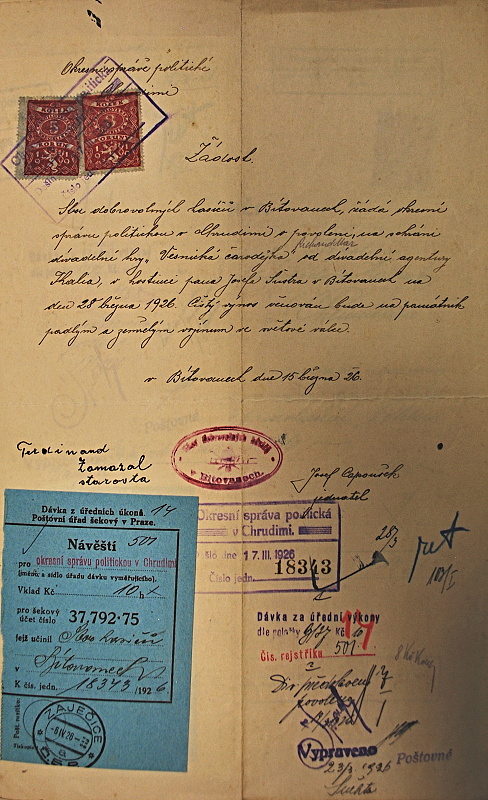 Okresní správě politické
v Chrudimi
KOLEK
5
KORUN
KOLEK
3
KORUNY
Žádost.
Sbor dobrovolných hasičů v Bítovanech, žádá okresní
správu politickou v Chrudimi o povolení, na sehrání
divadelní hry „Vesnická čarodějka" od divadelní agentury
Kalia, v hostinci pana Josefa Šustra v Bítovanech na
den 28 března 1926. Čistý výnos věnován bude na památník
padlým a zemřelým vojínům ve světové válce.
v Bítovanech dne 15 března 26.
Ferdinand
Zamazal
starosta
Sbor dobrovolných hasičů
v Bítovanech.
Josef Capoušek
jednatel
Okresní správa politická
v Chrudimi.
Došlo dne 17. III. 1926
Číslo jedn. 18343
28/3
Dávka z úředních úkonů. 14
Poštovní úřad šekový v Praze.
Návěští 501
pro okresní správu politickou v Chrudimi
(jméno a sídlo úřadu dávku vyměřujícího).
Vklad Kč 10 h
pro šekový
účet číslo 37,792·75
jejž učinil Sbor hasičů
v Bítovanech
K čís. jedn. 18343/1926
ZAJEČICE
-6.IV.26-
a
Č.S.P.
Dávka za úřední výkony
dle položky 9/37 Kč 10
Čís. rejstříku 501
14
Vypraveno
Poštovné
23/3 1926